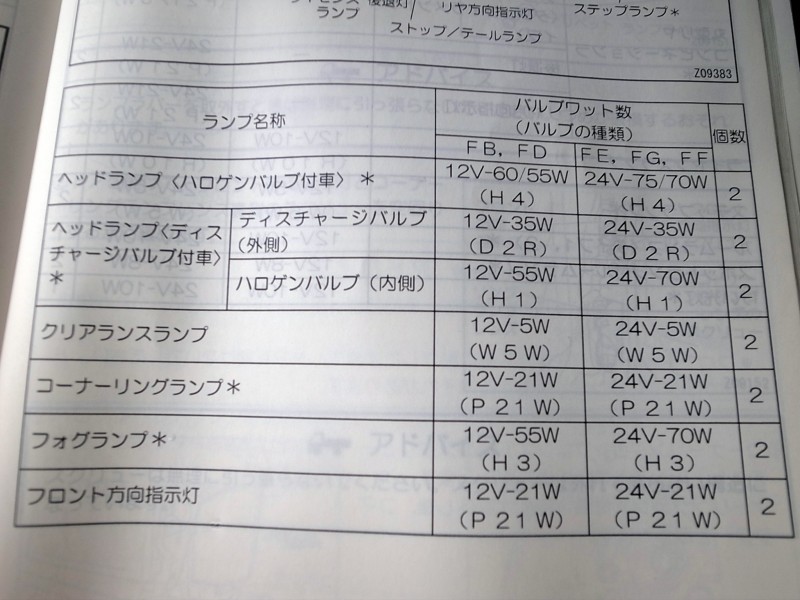 ランプ
後退灯
リヤ方向指示灯
ステップランプ*
ストップ/テールランプ
Z09383
ランプ名称
バルブワット数
(バルブの種類)
個数
FB, FD
FE, FG, FF
ヘッドランプ〈ハロゲンバルブ付車〉*
12V-60/55W
(H4)
24V-75/70W
(H4)
2
ヘッドランプ〈ディス
チャージバルブ付車〉
*
ディスチャージバルブ
(外側)
12V-35W
(D2R)
24V-35W
(D2R)
2
ハロゲンバルブ(内側)
12V-55W
(H1)
24V-70W
(H1)
2
クリアランスランプ
12V-5W
(W5W)
24V-5W
(W5W)
2
コーナーリングランプ*
12V-21W
(P21W)
24V-21W
(P21W)
2
フォグランプ*
12V-55W
(H3)
24V-70W
(H3)
2
フロント方向指示灯
12V-21W
(P21W)
24V-21W
(P21W)
2